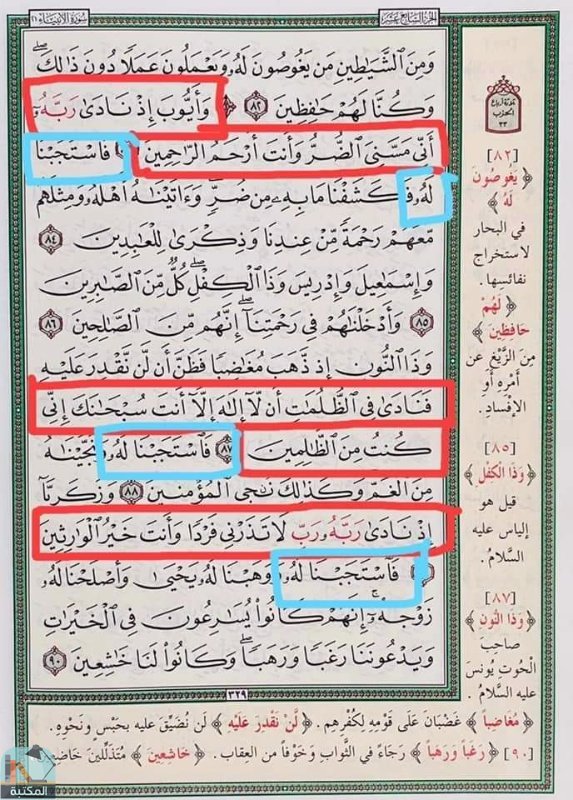 الجزء السابع عشر
سورة الأنبياء ٢١
وَمِنَ الشَّيَاطِينِ مَن يَغُوصُونَ لَهُ وَيَعْمَلُونَ عَمَلًا دُونَ ذَٰلِكَ ۖ
وَكُنَّا لَهُمْ حَافِظِينَ ٨٢ وَأَيُّوبَ إِذْ نَادَىٰ رَبَّهُ
أَنِّي مَسَّنِيَ الضُّرُّ وَأَنتَ أَرْحَمُ الرَّاحِمِينَ فَاسْتَجَبْنَا
لَهُ فَكَشَفْنَا مَا بِهِ مِن ضُرٍّ ۖ وَآتَيْنَاهُ أَهْلَهُ وَمِثْلَهُم
مَّعَهُمْ رَحْمَةً مِّنْ عِندِنَا وَذِكْرَىٰ لِلْعَابِدِينَ ٨٤
وَإِسْمَاعِيلَ وَإِدْرِيسَ وَذَا الْكِفْلِ ۖ كُلٌّ مِّنَ الصَّابِرِينَ
٨٥ وَأَدْخَلْنَاهُمْ فِي رَحْمَتِنَا ۖ إِنَّهُم مِّنَ الصَّالِحِينَ ٨٦
وَذَا النُّونِ إِذ ذَّهَبَ مُغَاضِبًا فَظَنَّ أَن لَّن نَّقْدِرَ عَلَيْهِ
فَنَادَىٰ فِي الظُّلُمَاتِ أَن لَّا إِلَٰهَ إِلَّا أَنتَ سُبْحَانَكَ إِنِّي
كُنتُ مِنَ الظَّالِمِينَ ٨٧ فَاسْتَجَبْنَا لَهُ وَنَجَّيْنَاهُ
مِنَ الْغَمِّ ۚ وَكَذَٰلِكَ نُنجِي الْمُؤْمِنِينَ ٨٨ وَزَكَرِيَّا
إِذْ نَادَىٰ رَبَّهُ رَبِّ لَا تَذَرْنِي فَرْدًا وَأَنتَ خَيْرُ الْوَارِثِينَ
فَاسْتَجَبْنَا لَهُ وَوَهَبْنَا لَهُ يَحْيَىٰ وَأَصْلَحْنَا لَهُ
زَوْجَهُ ۚ إِنَّهُمْ كَانُوا يُسَارِعُونَ فِي الْخَيْرَاتِ
وَيَدْعُونَنَا رَغَبًا وَرَهَبًا ۖ وَكَانُوا لَنَا خَاشِعِينَ ٩٠
٣٢٩
الحزب
٣٣
[٨٢]
﴿يَغُوصُونَ
لَهُ﴾
في البحار
لاستخراج
نفائسها.
﴿لَهُمْ
حَافِظِينَ﴾
مِنَ الزَّيْغِ عن
أمْرِهِ أو
الإفسادِ.
[٨٥]
﴿وَذَا الكِفْلِ﴾
قيل هو
إلياس عليه
السَّلامُ.
[٨٧]
﴿وَذَا النُّونِ﴾
صاحبَ
الحُوتِ يُونسَ
عليه السَّلامُ.
﴿مُغَاضِباً﴾ غَضْبَانَ عَلَى قَوْمِهِ لِكُفْرِهِم. ﴿لَنْ نَقْدِرَ عَلَيْهِ﴾ لَن نُضَيِّقَ عليه بحَبْسٍ وَنَحْوِهِ.
[٩٠] ﴿رَغَباً وَرَهَباً﴾ رَجَاءً في الثَّوَابِ وَخَوْفاً من العِقَابِ. ﴿خَاشِعِينَ﴾ مُتَذَلِّلِينَ خَاضِعِينَ
المكتبة